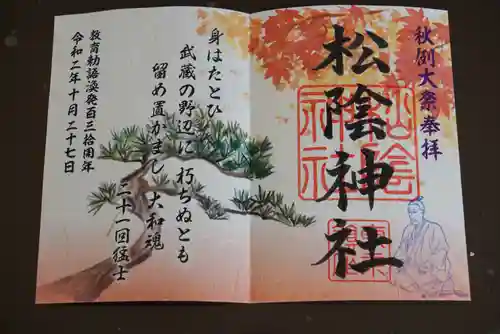 秋例大祭奉拝
松陰神社
松陰神社
身はたとひ
武蔵の野辺に朽ちぬとも
留め置かまし大和魂
二十一回猛士
教育勅語渙発百三拾周年
令和二年十月二十七日